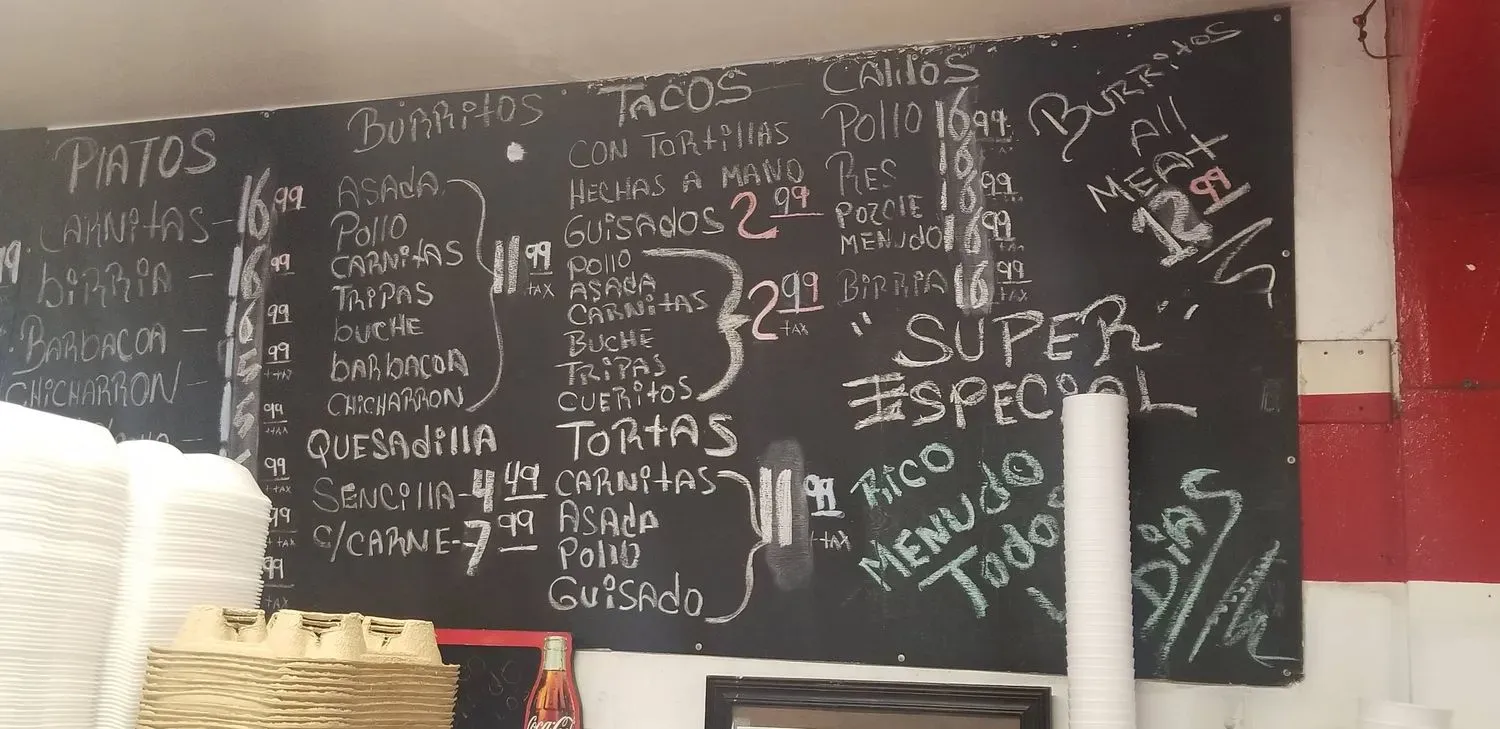 PlATOS
CARNitAS - 16 99
biRRiA - 16 99
BARBACOA - 16 99
CHiCHARRON - 15 99
BURRitOS
ASADA
Pollo
CARNitAS
TRiPAS
bUCHE
bARbACOA
CHiCHARRON
11 99
tAX
QUESAdillA
SENCillA-4 49
c/CARNE-7 99
TACOS
CON TORtillAS
HECHAS A MANO
GUiSADOS 2 99
Pollo
ASADA
CARNitAS
BUCHE
TRiPAS
CUERitOS
2 99
tAX
TORtAS
CARNitAS
ASADA
Pollo
GUiSAdO
11 99
+tAX
CAldOS
Pollo 16 99
RES 16 99
POZOlE 16 99
MENUdO 16 99
BiRRiA 16 99
tAX
BURRitOS
All
MEAt
12 99
"SUPER"
ESPECiAL
Rico
MENUdO
TOdOS
DiAS
Coca-Cola